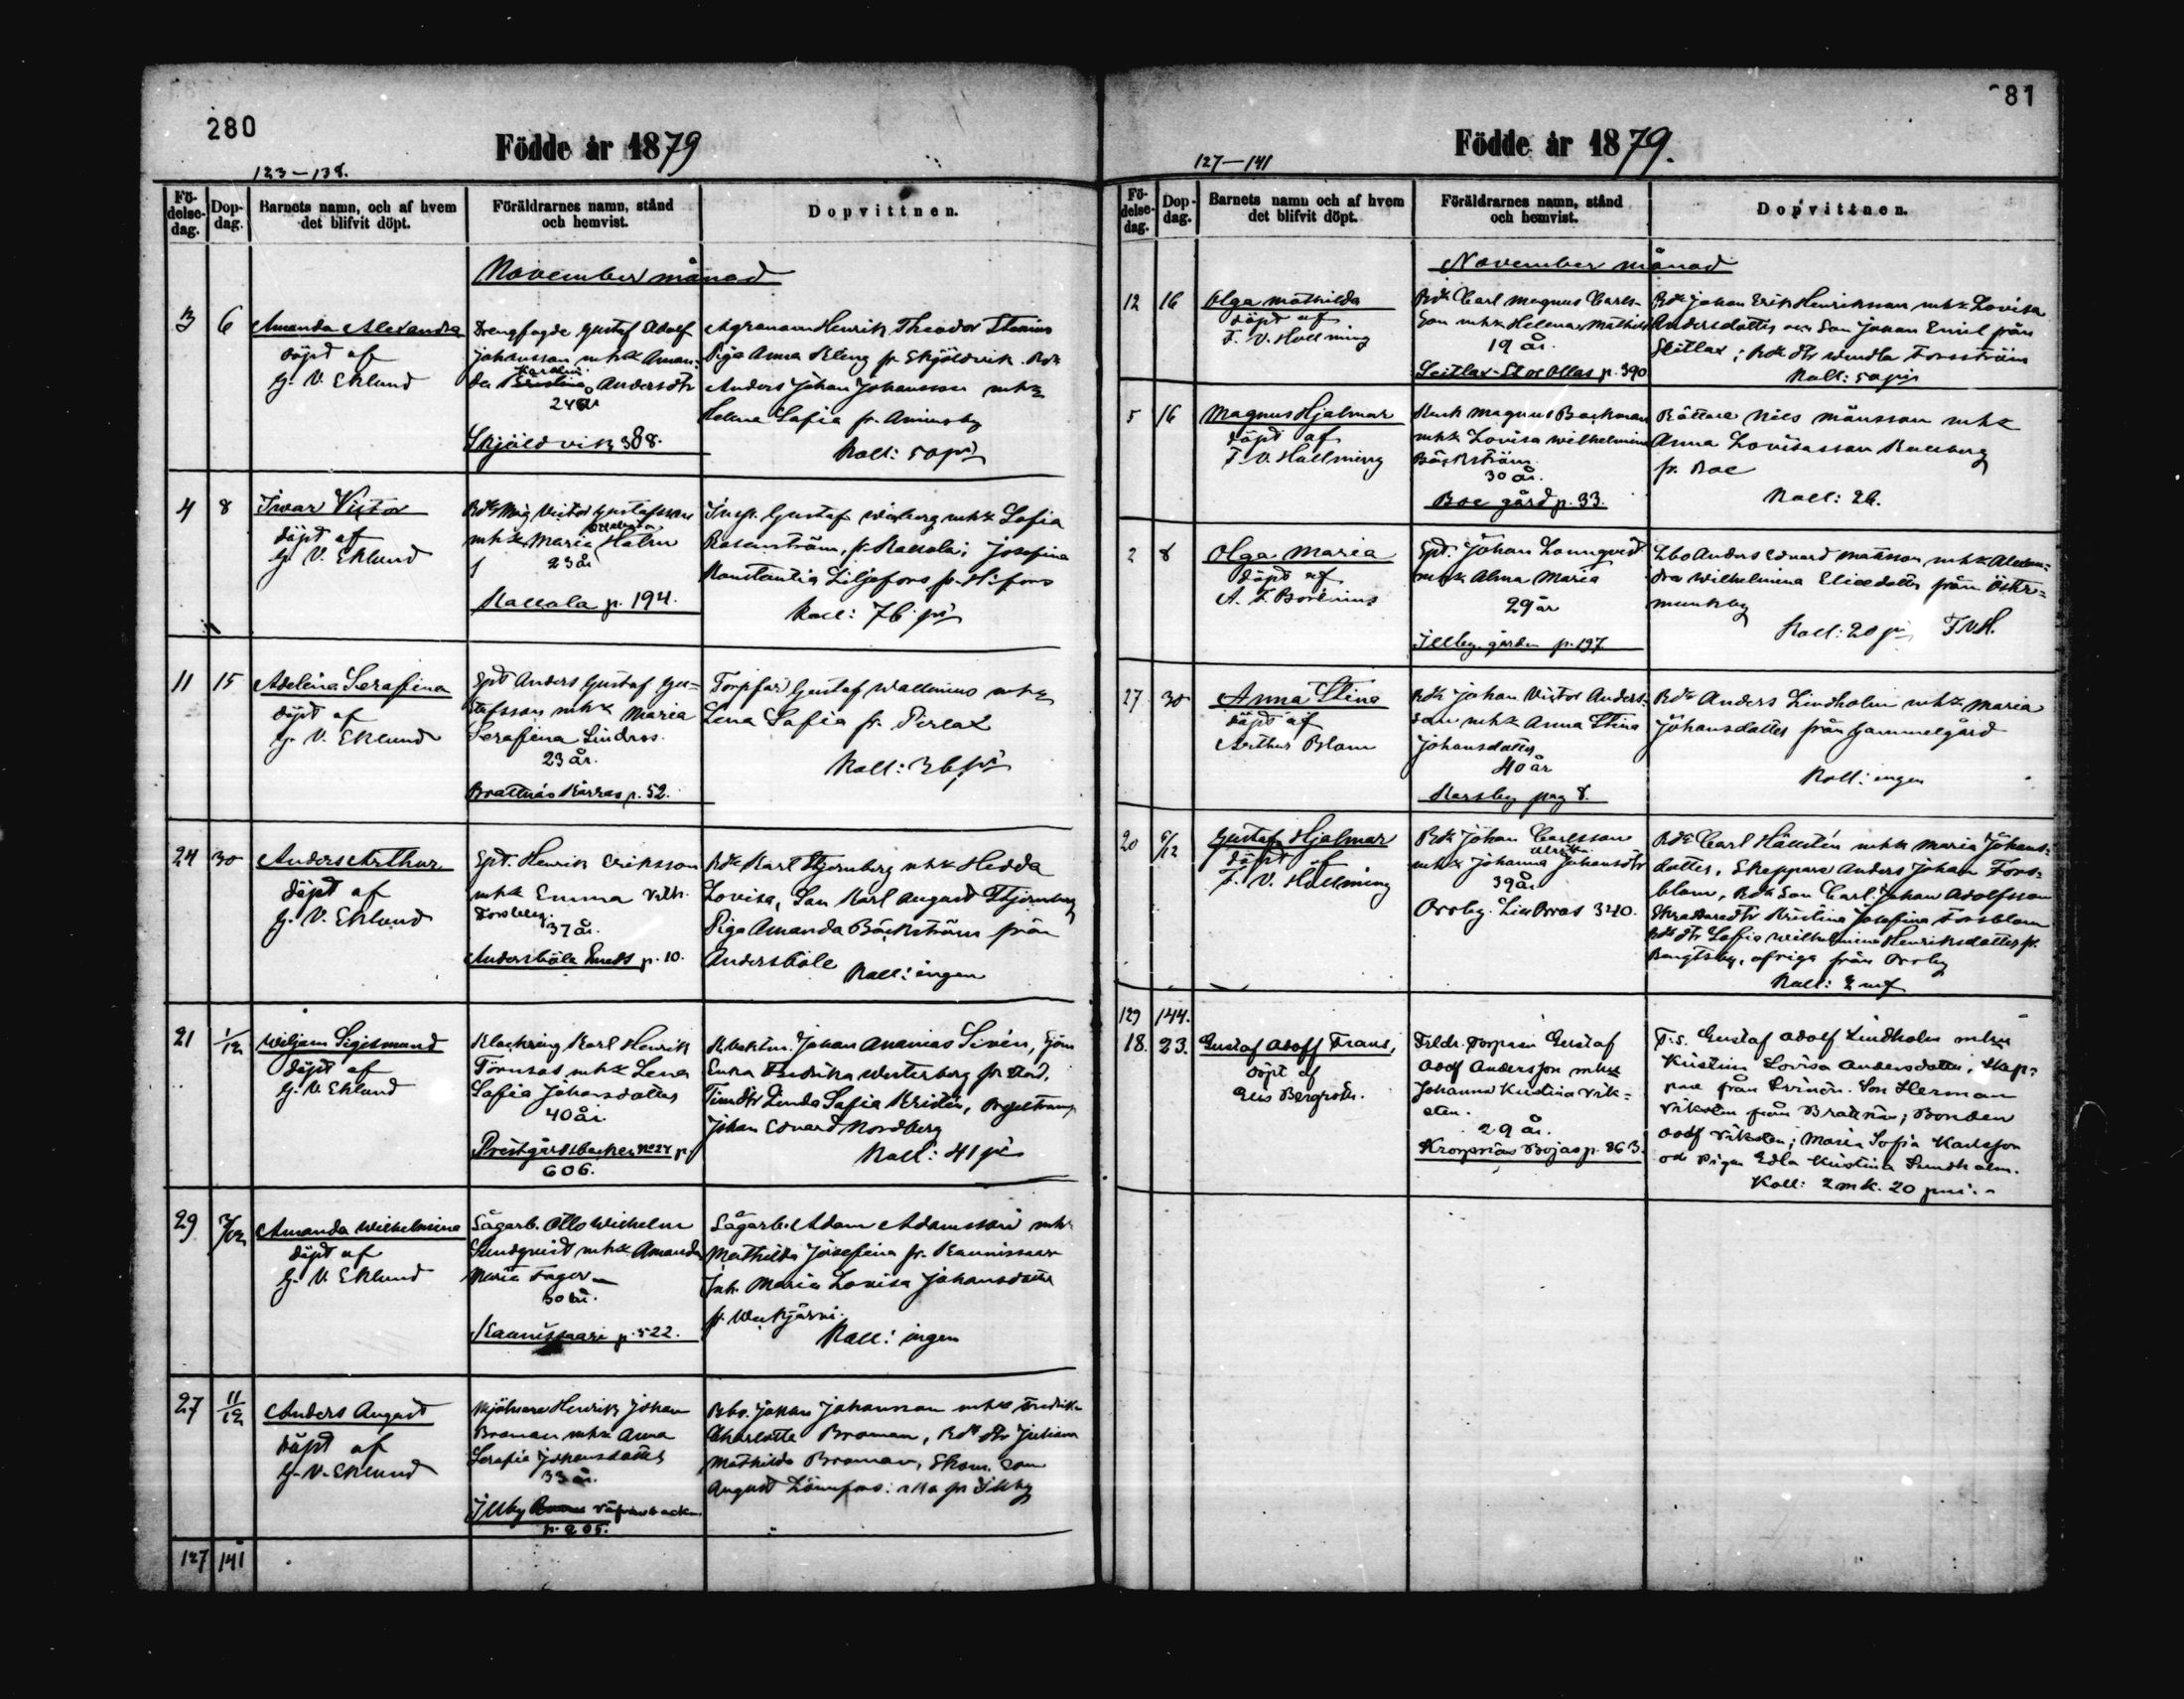 280
Födde år 1879
123–138.
Födelsedag.
Dopdag.
Barnets namn, och af hvem det blifvit döpt.
Föräldrarnes namn, stånd och hemvist.
Dopvittnen.
November månad
3 6 Amanda Alexandra
döpt af
G. V. Eklund
Drengfogde Gustaf Adolf
Johansson mhk Aman-
da Karolin. Andersdtr
24 år
Skjöldvik 388.
Agronom Henrik Theodor
Piga Anna Kling fr. Skjöldvik. Bdk
Anders Johan Johansson mhk
Helena Sofia fr.
Koll: 50 pi
4 8 Ivar Victor
döpt af
G. V. Eklund
Bdk Måg Victor Gustafsson
mhk Maria Holm
23 år
Kallola p. 194.
Insp. Gustaf mhk Sofia
Rosenström, fr. Kallola; Josefina
Konstantia Liljefors fr. H:fors
Koll: 76 pi
11 15 Adelina Serafina
döpt af
G. V. Eklund
Spt Anders Gustaf Gu-
stafsson mhk Maria
Serafina Lindros.
23 år.
Brattnäs Kärras p. 52.
Torpfar Gustaf Wallenius mhk
Lena Sofia fr. Pirlax
Koll: 36 pi
24 30 Anders Arthur
döpt af
G. V. Eklund
Spt. Henrik Eriksson
mhk Emma Vilh.
Forsberg.
37 år.
Andersböle Smeds p. 10.
Bdk Karl Stjernberg mhk Hedda
Lovisa, Son Karl August Stjernberg
Piga Amanda Bäckström från
Andersböle
Koll: ingen
21 1/12 Wiljam Sigismund
döpt af
G. V. Eklund
Klockring Karl Henrik
Törnros mhk Lena
Sofia Johansdotter
40 år
Prestgårdsbacken No 24 p.
606.
Johan Ananias Sivén,
Enka Fredrika Westerberg fr Stad.
Linda Sofia
Johan Edvard Nordberg
Koll: 41 pi
29 7/12 Amanda Wilhelmina
döpt af
G. V. Eklund
Sågarb. Otto Wilhelm
Sundqvist mhk Amanda
Maria Fager
30 år.
Kaunissaari p. 522.
Sågarb. Adam Adamsson mhk
Mathilda Josefina fr. Kaunissaar
Inh. Maria Lovisa Johansdotter
fr.
Koll: ingen
27 11/12 Anders August
döpt af
G. V. Eklund
Mjölnare Henrik Johan
Broman mhk Anna
Serafia Johansdotter
33 år.
Illby
p. 205.
Bbo. Johan Johansson mhk Fredrika
Charlotta Broman, Bdk dtr Juliana
Mathilda Broman, Skom. Son
August Lönnfors: alla fr Illby
127 141
281
Födde år 1879.
127–141
Födelsedag.
Dopdag.
Barnets namn och af hvem det blifvit döpt.
Föräldrarnes namn, stånd och hemvist.
Dopvittnen.
November månad
12 16 Olga Mathilda
döpt af
F. V. Hollming
Bdk Carl Magnus Carls-
son mhk Helena Mathild
19 år.
Seitlax Stor Ollas p. 390
Bdk Johan Erik Henriksson mhk Lovisa
Andersdotter och Son Johan Emil från
Seitlax; Bdk dtr Wendla Forsström
Koll: 50 pi
5 16 Magnus Hjalmar
döpt af
F. V. Hollming
Magnus Backman
mhk Lovisa Wilhelmina
Bäckström
30 år.
Boe gård p. 33.
Rättare Nils Månsson mhk
Anna
fr. Boe
Koll: 26.
2 8 Olga Maria
döpt af
A. F. Borenius
Spt. Johan Lönnqvist
mhk Alma Maria
29 år
Illby gården p. 197
Lbo Anders Edvard Matsson mhk Alexan-
dra Wilhelmina Eliedotter från Öster-
munkby
Koll: 20 pi F.V.H.
27 30 Anna Stina
döpt af
Arthur Blom
Bdk Johan Victor Anders-
son mhk Anna Stina
Johansdotter
40 år
Karsby pag 8.
Bdk Anders Lindholm mhk Maria
Johansdotter från Gammelgård
Koll: ingen
20 6/12 Gustaf Hjalmar
döpt af
F. V. Hollming
Bdk Johan Carlsson
mhk Johanna Ulrik Johansdtr
39 år
Orrby Lill Orras 340.
Bdk Carl Hällstén mhk Maria Johans-
dotter, Skeppare Anders Johan Fors-
blom, Bdk Son Carl Johan Adolfsson
Skräddaredtr Kristina Josefina Forsblom
Bdk dtr Sofia Wilhelmina Henriksdotter fr.
Bengtsby, öfriga från Orrby
Koll: 2 mf
129 144.
18. 23. Gustaf Adolf Frans,
döpt af
Elis Bergroth.
Frldr. Torparen Gustaf
Adolf Andersson mhk
Johanna Kristina Vik-
sten.
29 år.
Kroppnäs Bojas p. 863.
T.s. Gustaf Adolf Lindholm mhk
Kristina Lovisa Andersdotter,
från Svinö. Son Herman
Viksten från Brattnäs; Bonden
Adolf Viksten; Maria Sofia Karlsson
och Pigan Edla Kristina Lindholm.
Koll: 2 mk. 20 pni.